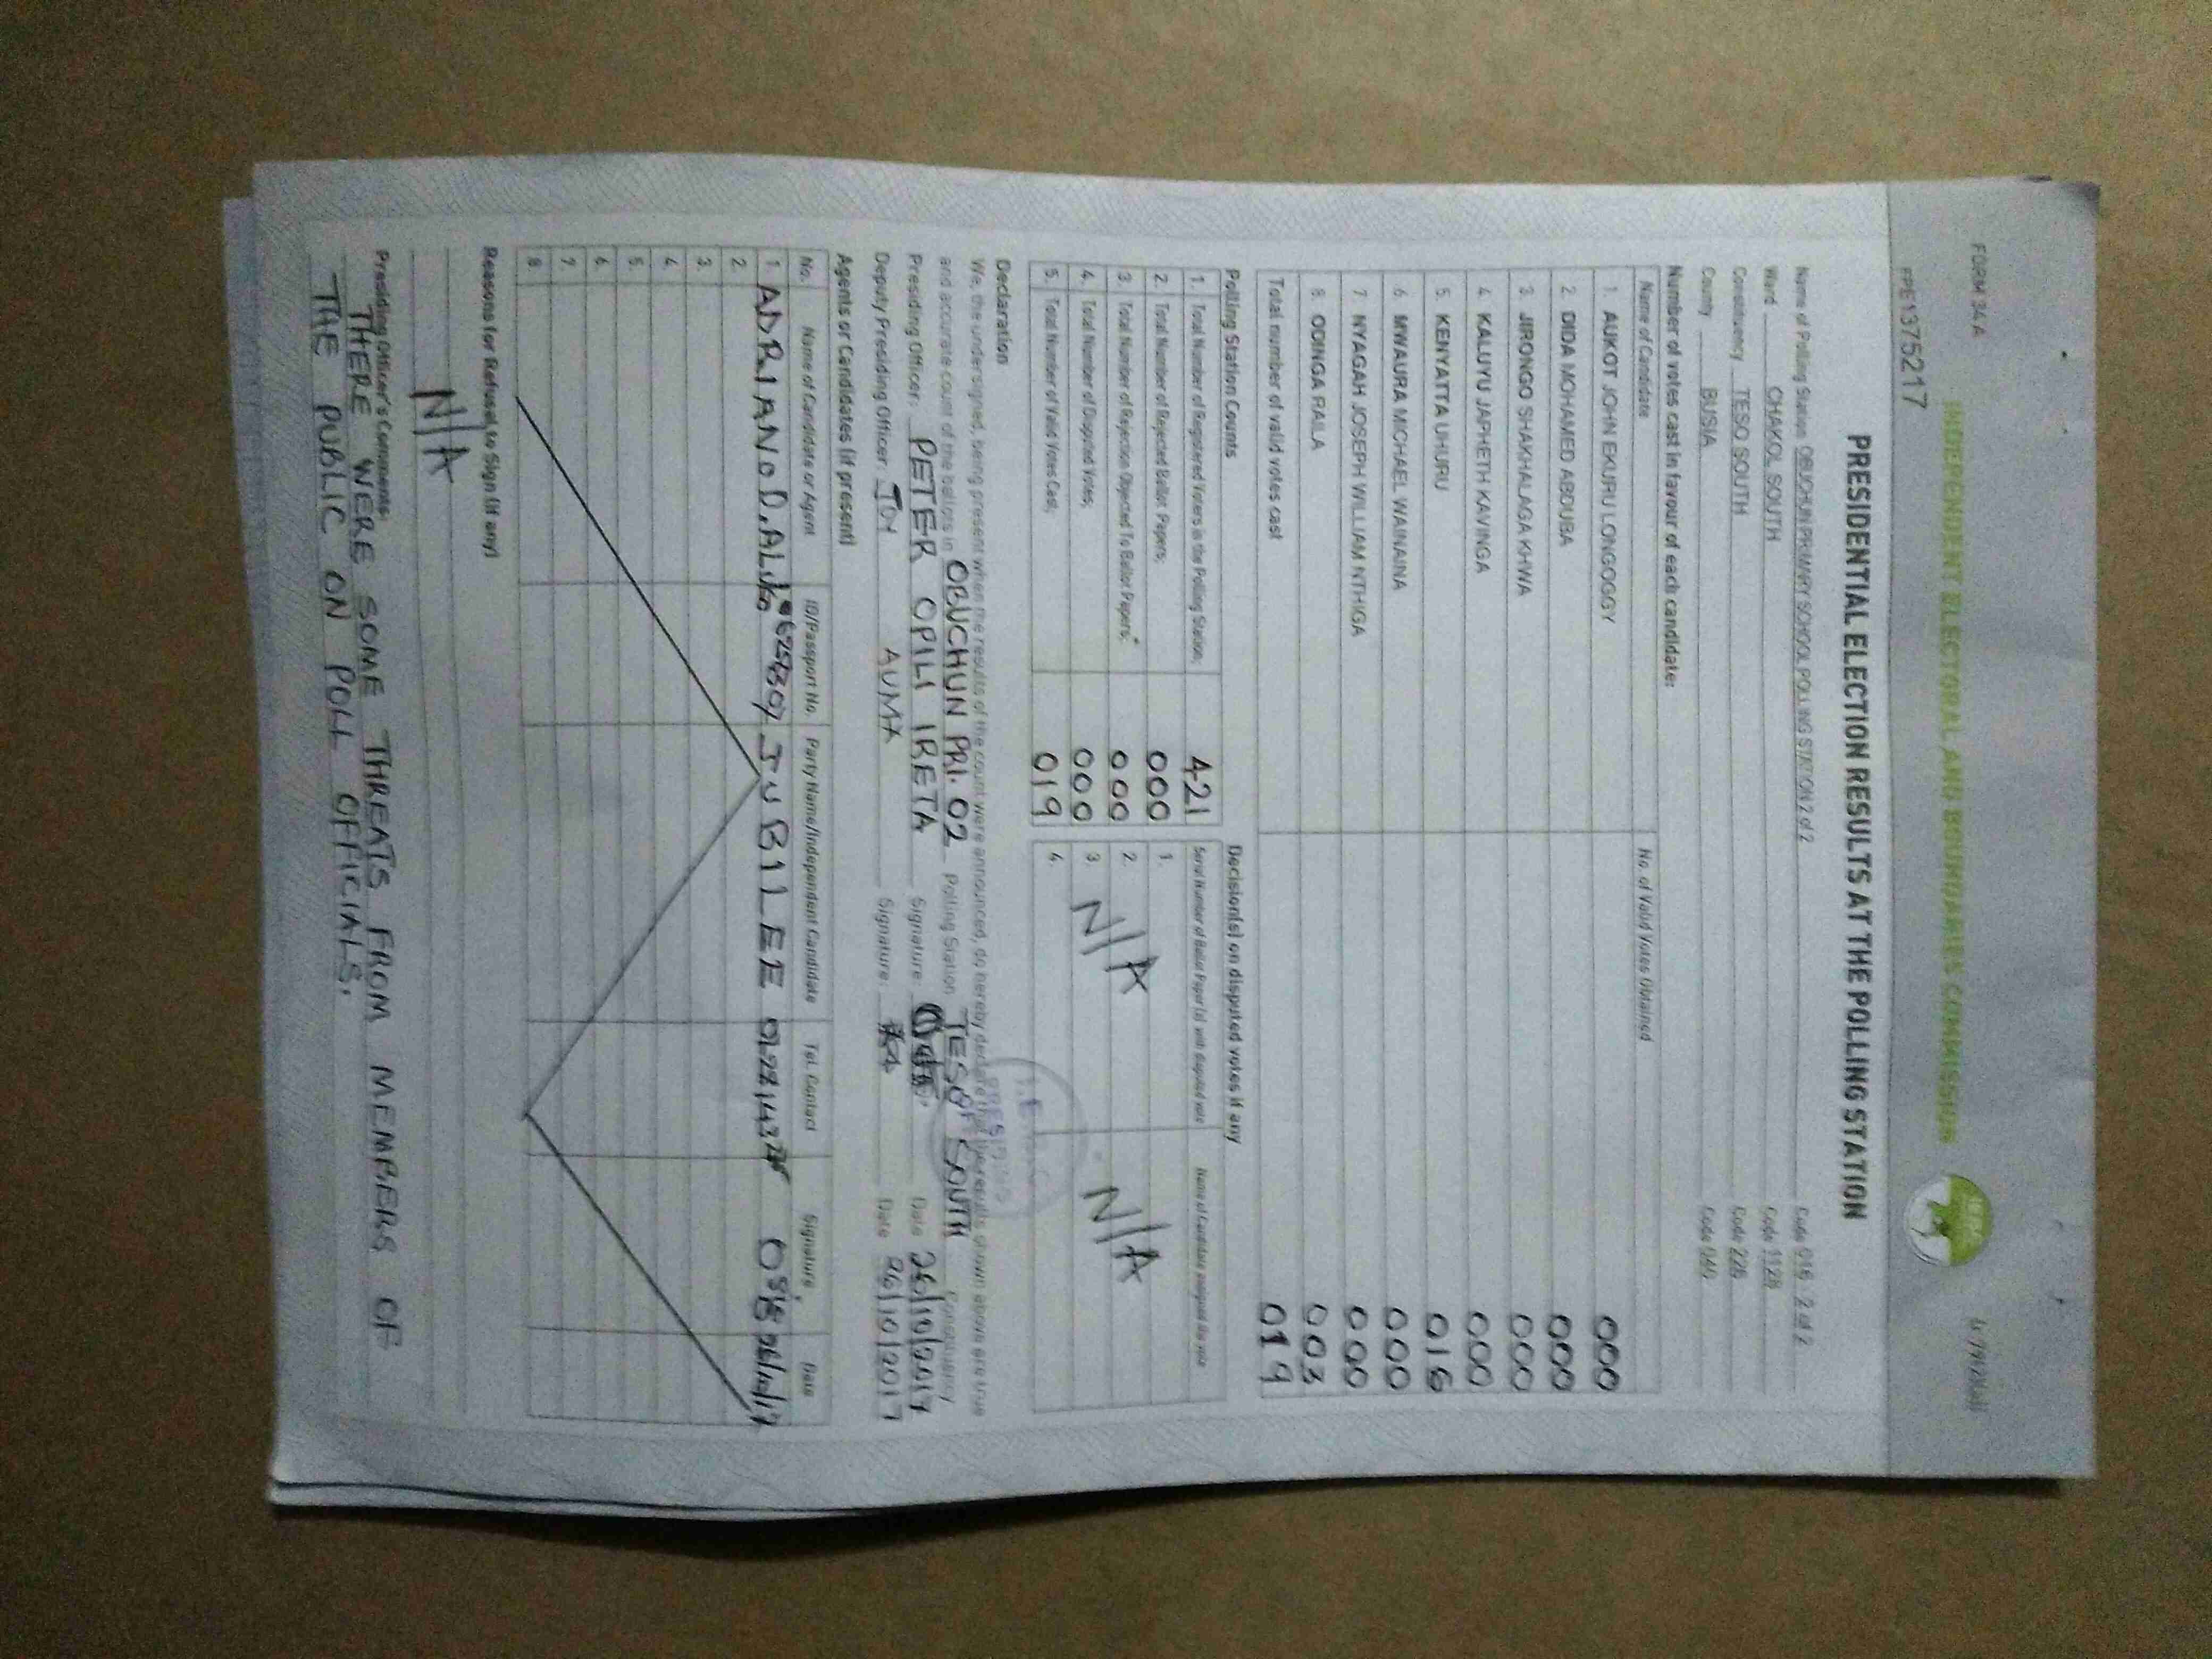 FORM 34 A
INDEPENDENT ELECTORAL AND BOUNDARIES COMMISSION
PPE1375217
PRESIDENTIAL ELECTION RESULTS AT THE POLLING STATION
Name of Polling Station OBUCHUN PRIMARY SCHOOL POLLING STATION 2 of 2 Code 016 2 of 2
Ward CHAKOL SOUTH Code 1128
Constituency TESO SOUTH Code 226
County BUSIA Code 040
Number of votes cast in favour of each candidate:
Name of Candidate No. of Valid Votes Obtained
1. AUKOT JOHN EKURU LONGOGGY 000
2. DIDA MOHAMED ABDUBA 000
3. JIRONGO SHAKHALAGA KHWA 000
4. KALUYU JAPHETH KAVINGA 000
5. KENYATTA UHURU 016
6. MWAURA MICHAEL WAINAINA 000
7. NYAGAH JOSEPH WILLIAM NTHIGA 000
8. ODINGA RAILA 003
Total number of valid votes cast 019
Polling Station Counts
1. Total Number of Registered Voters in the Polling Station; 421
2. Total Number of Rejected Ballot Papers; 000
3. Total Number of Rejection Objected To Ballot Papers; 000
4. Total Number of Disputed Votes; 000
5. Total Number of Valid Votes Cast; 019
Decision(s) on disputed votes if any
Serial Number of Ballot Paper (s) with disputed vote Name of Candidate assigned the vote
1.
2.
3. N/A N/A
4.
Declaration
We, the undersigned, being present when the results of the count were announced, do hereby declare that the results shown above are true
and accurate count of the ballots in OBUCHUN PRI. 02 Polling Station TESO SOUTH Constituency
Presiding Officer: PETER OPILI IRETA Signature: Date 26/10/2017
Deputy Presiding Officer: JOY AUMA Signature: Date 26/10/2017
I.E.B.C
PRESIDING
Agents or Candidates (if present)
No. Name of Candidate or Agent ID/Passport No. Party Name/Independent Candidate Tel. Contact Signature Date
1. ADRIANO D. JUBILEE 26/10/17
2.
3.
4.
5.
6.
7.
8.
Reasons for Refusal to Sign (if any)
N/A
Presiding Officer's Comments:
THERE WERE SOME THREATS FROM MEMBERS OF
THE PUBLIC ON POLL OFFICIALS.